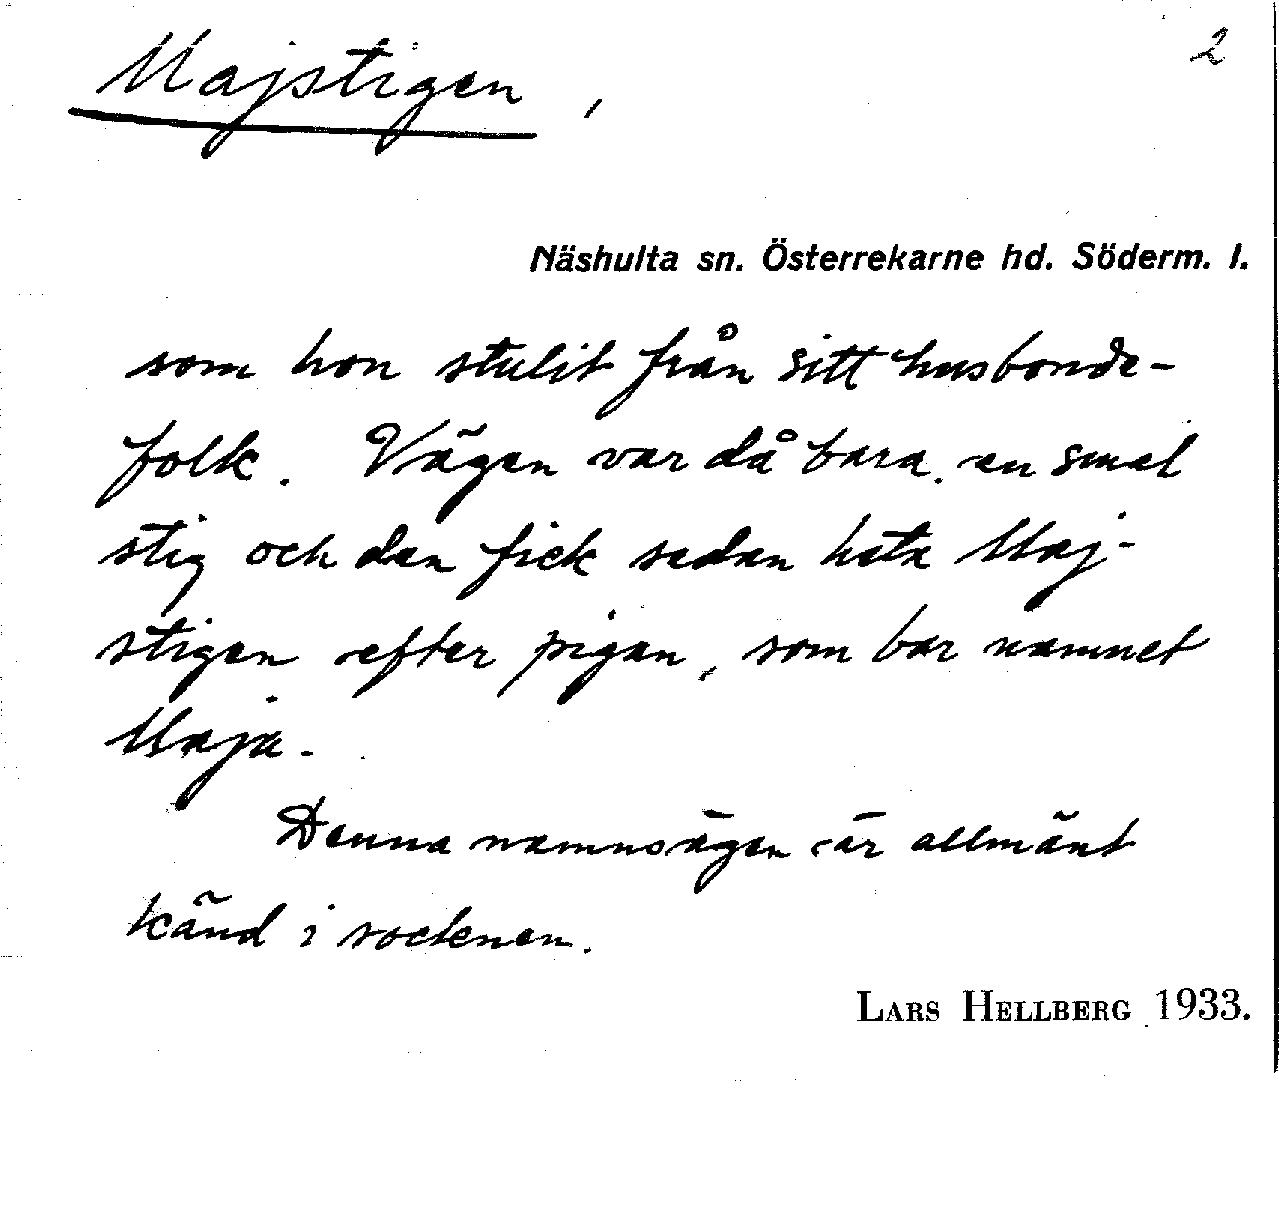 2
Majstigen,
Näshulta sn. Österrekarne hd. Söderm. l.
som hon stulit från sitt husbonde-
folk. Vägen var då bara en smal
stig och den fick sedan heta Maj-
stigen efter pigan, som bar namnet
Maja.
Denna namnsägen är allmänt
känd i socknen.
LARS HELLBERG 1933.